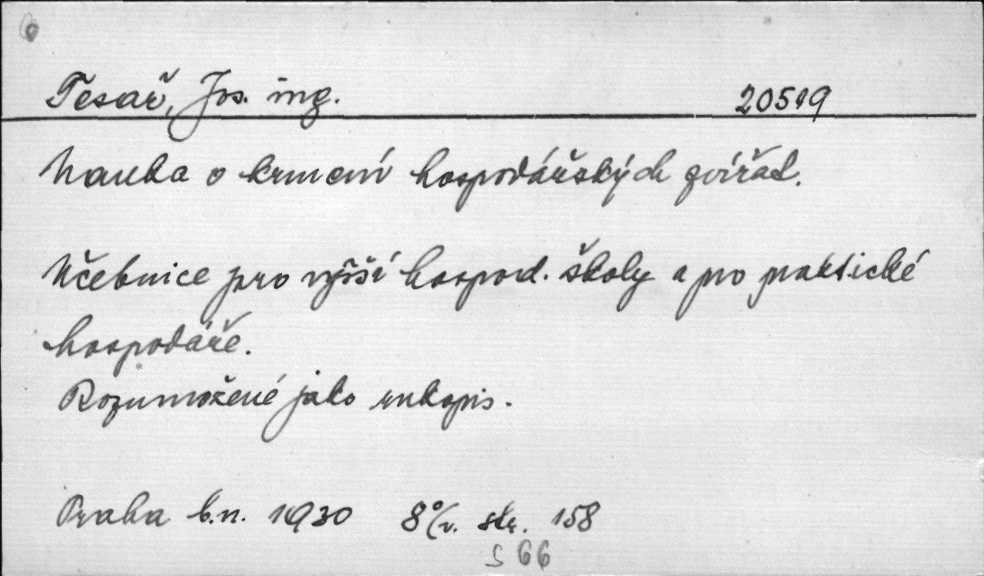 Tesař, Jos. ing. 20519
Nauka o krmení hospodářských zvířat.
Učebnice pro vyšší hospod. školy a pro praktické
hospodáře.
Rozumožené jako rukopis.
Praha b.n. 1930 8°/v. str. 158
S 66